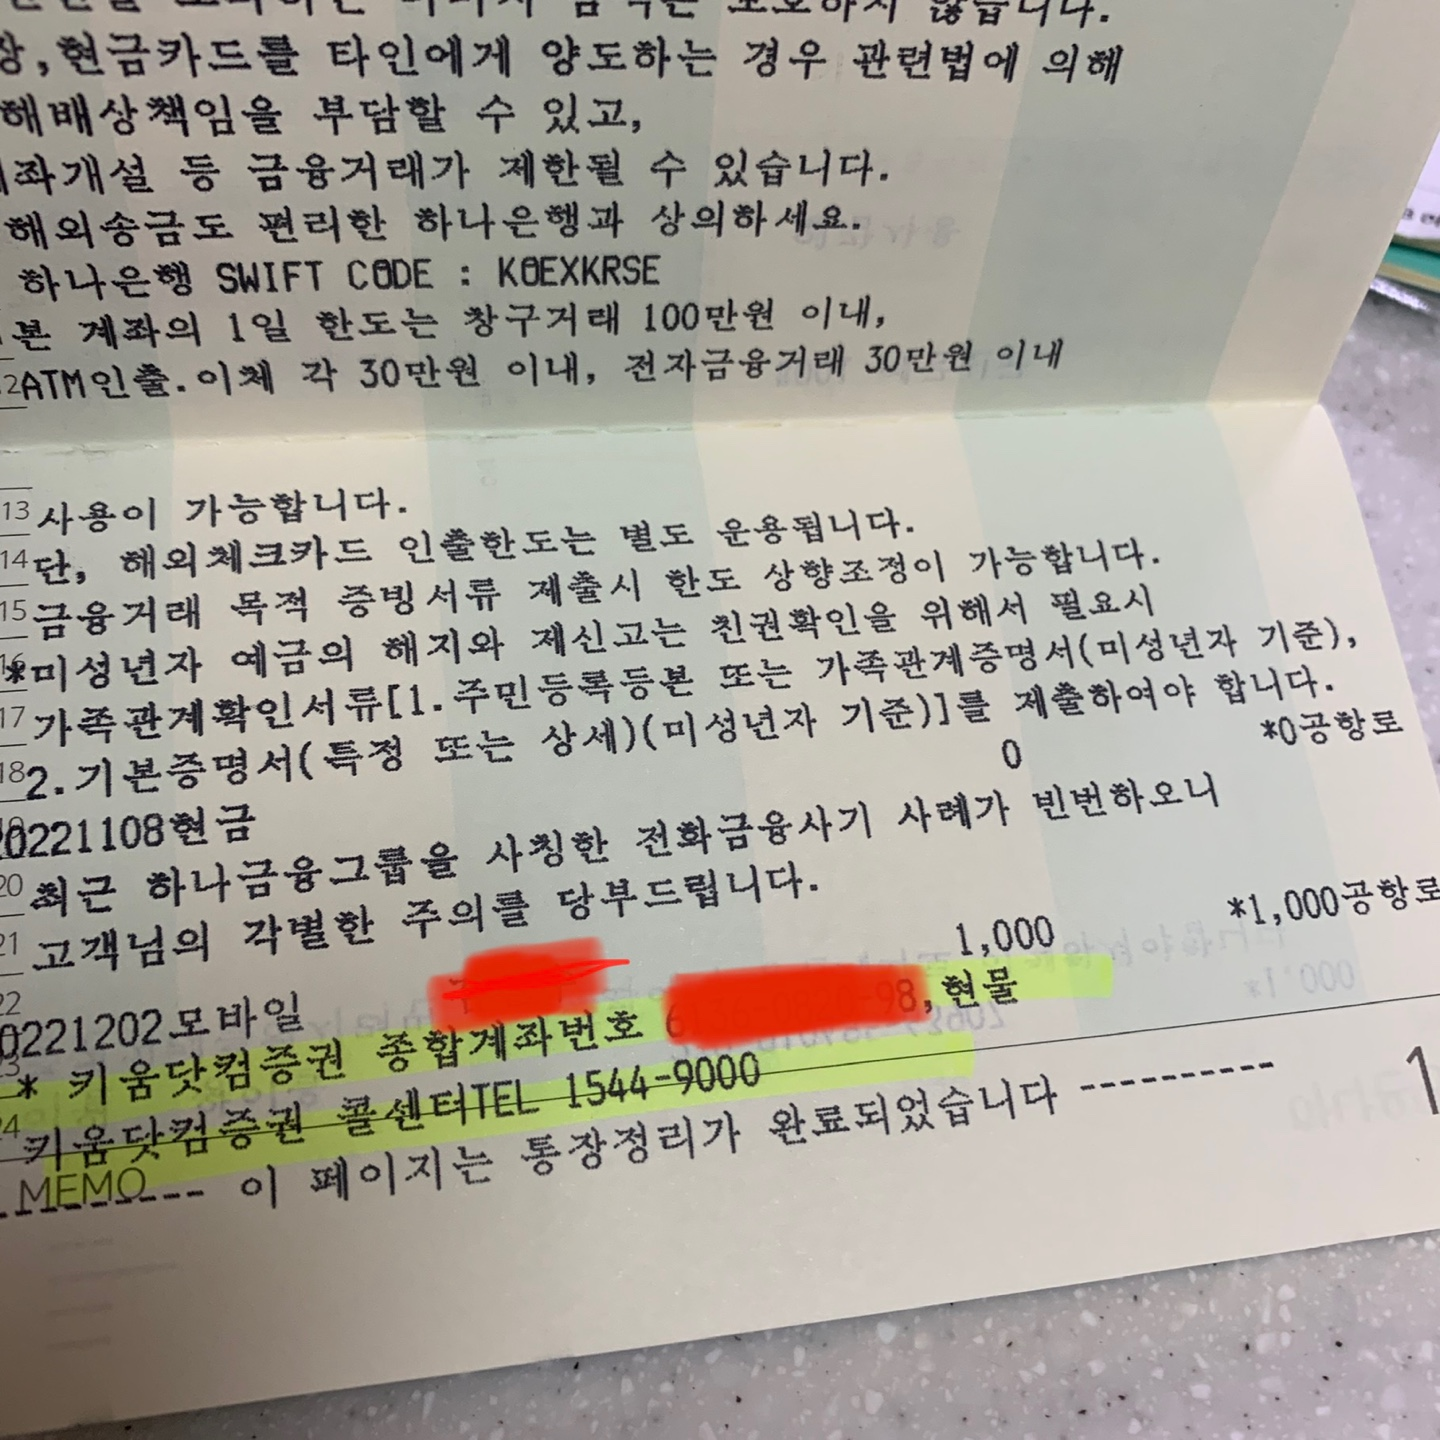 초과하는 나머지 금액은 보호하지 않습니다.
장,현금카드를 타인에게 양도하는 경우 관련법에 의해
해배상책임을 부담할 수 있고,
계좌개설 등 금융거래가 제한될 수 있습니다.
해외송금도 편리한 하나은행과 상의하세요.
하나은행 SWIFT CODE : KOEXKRSE
본 계좌의 1일 한도는 창구거래 100만원 이내,
12 ATM인출.이체 각 30만원 이내, 전자금융거래 30만원 이내
13 사용이 가능합니다.
14 단, 해외체크카드 인출한도는 별도 운용됩니다.
15 금융거래 목적 증빙서류 제출시 한도 상향조정이 가능합니다.
16 *미성년자 예금의 해지와 제신고는 친권확인을 위해서 필요시
17 가족관계확인서류[1.주민등록등본 또는 가족관계증명서(미성년자 기준),
18 2.기본증명서(특정 또는 상세)(미성년자 기준)]를 제출하여야 합니다.
19 20221108현금 0 *0공항로
20 최근 하나금융그룹을 사칭한 전화금융사기 사례가 빈번하오니
21 고객님의 각별한 주의를 당부드립니다.
22 20221202모바일 1,000 *1,000공항로
23 * 키움닷컴증권 종합계좌번호 6 -98,현물
24 키움닷컴증권 콜센터TEL 1544-9000
MEMO -------- 이 페이지는 통장정리가 완료되었습니다 ----------
1